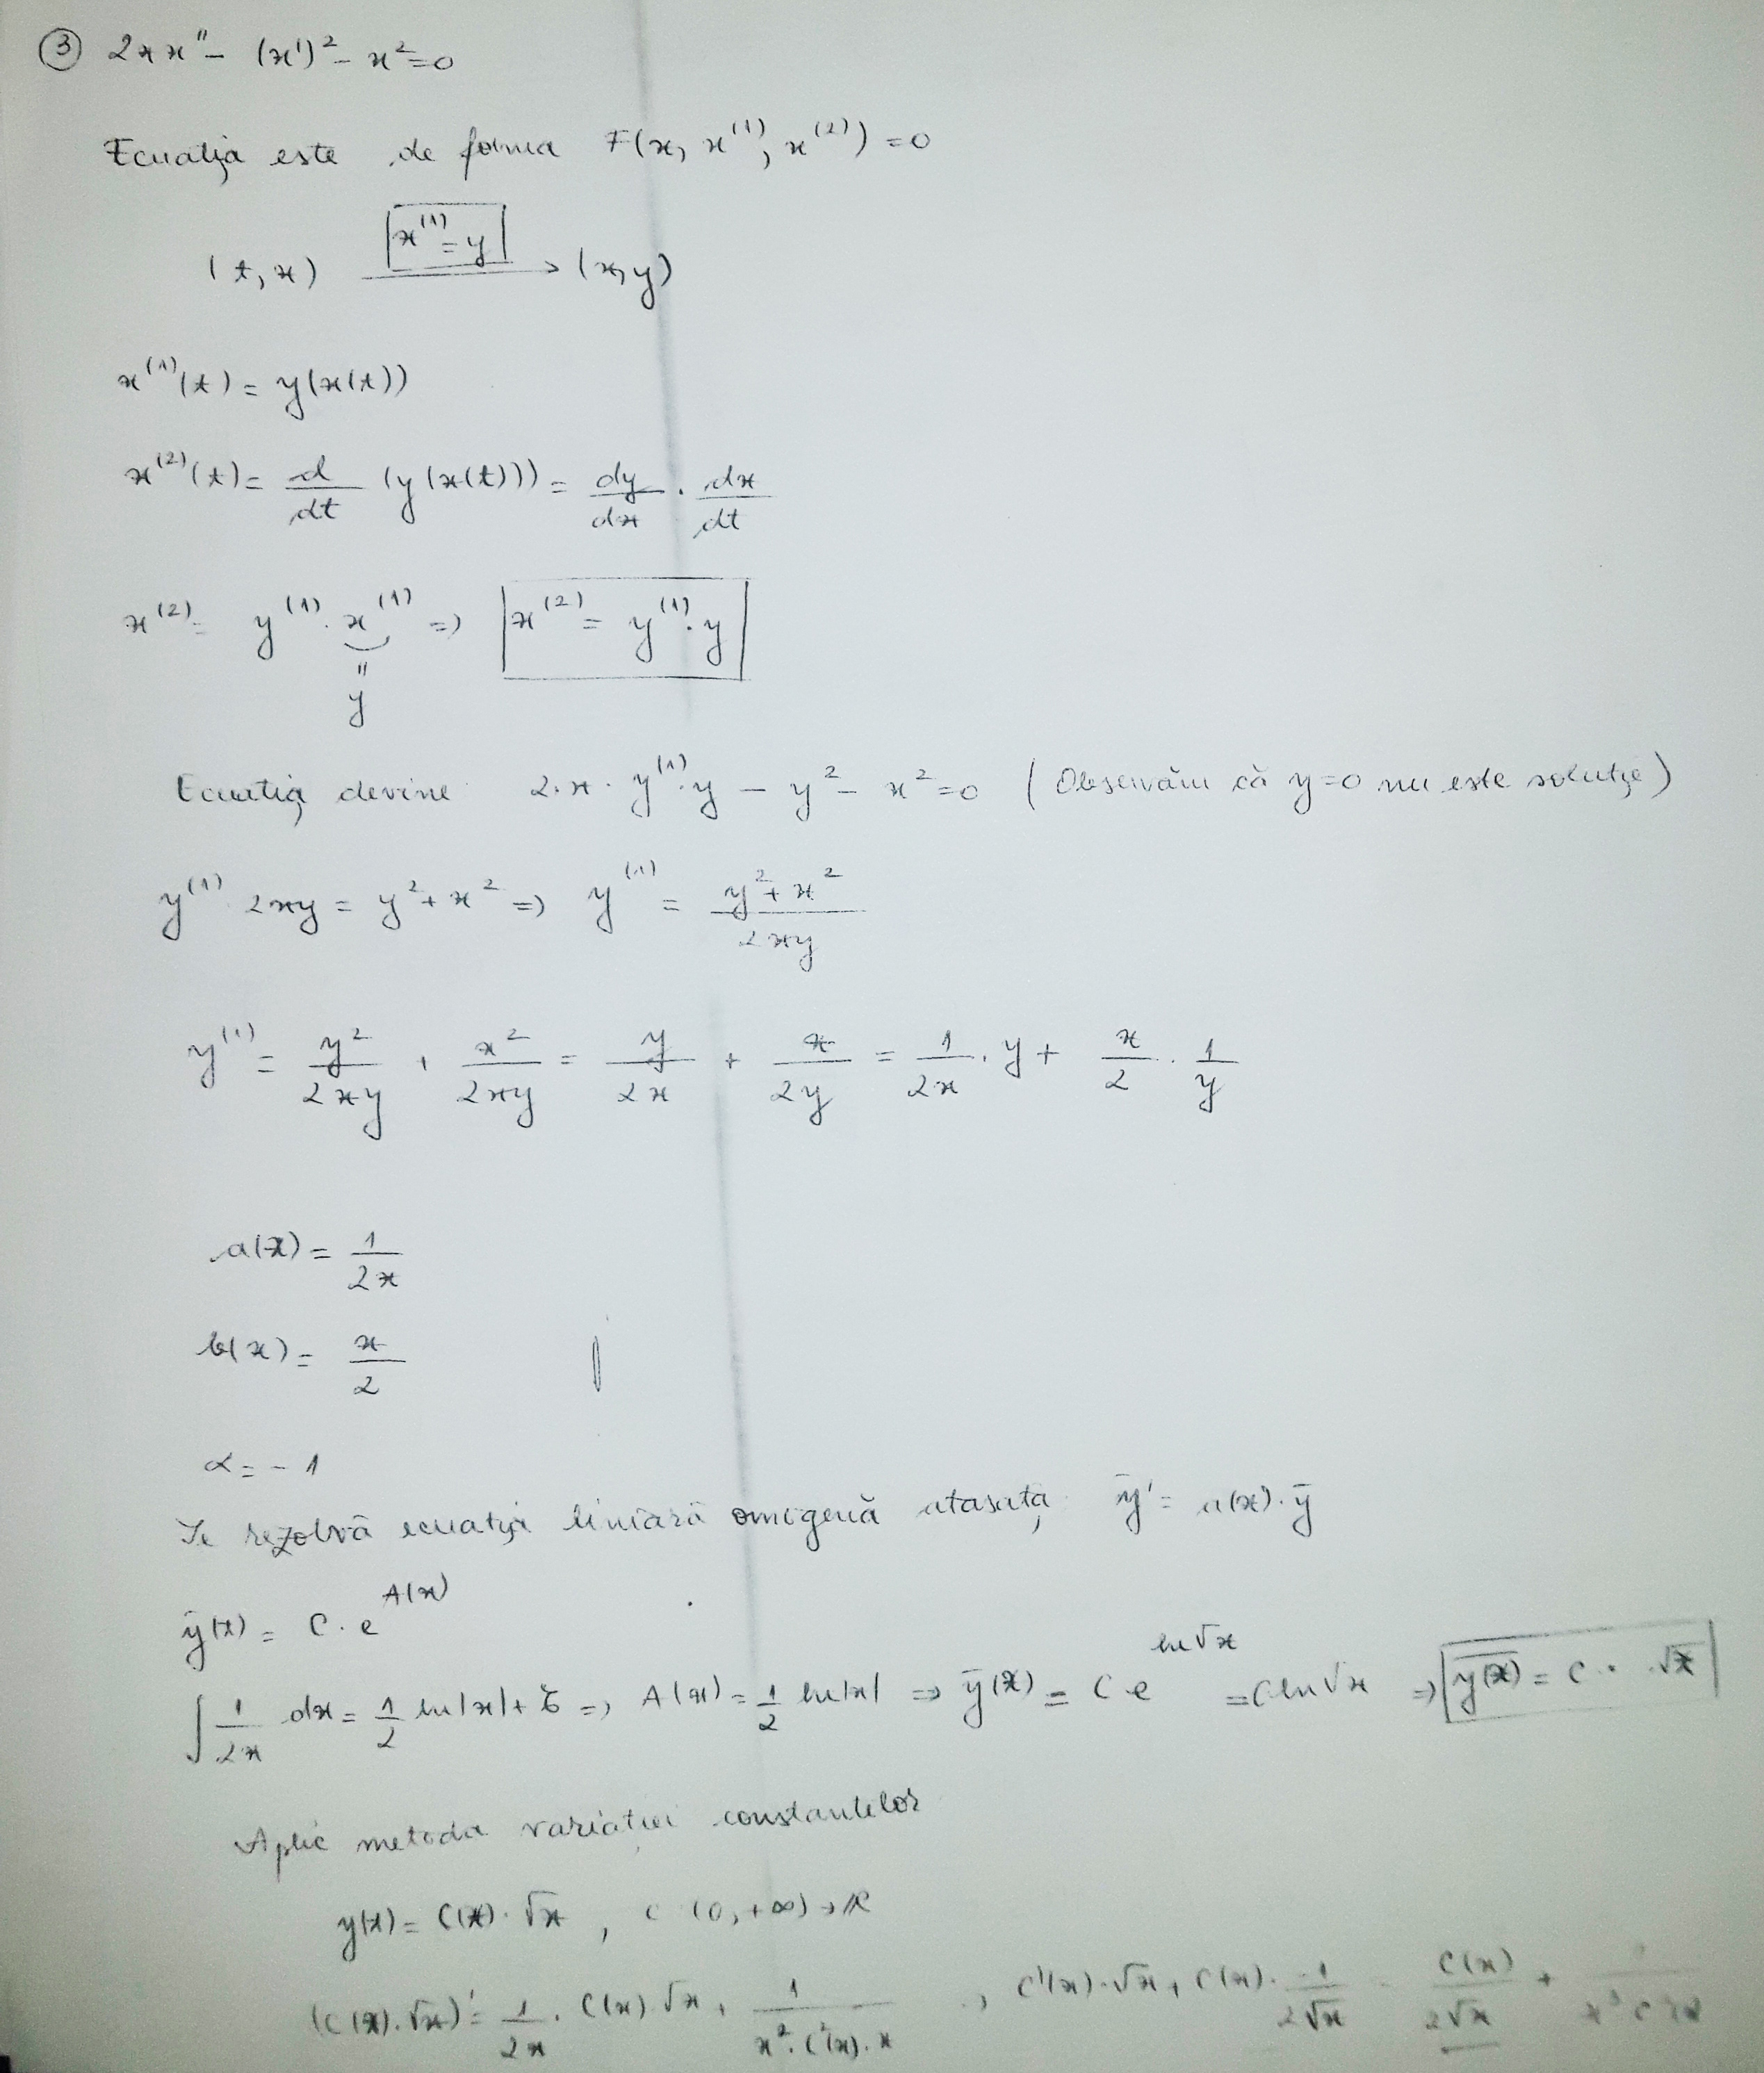 ③ 2xx'' - (x')² - x² = 0
Ecuația este de forma F(x, x⁽¹⁾, x⁽²⁾) = 0
x⁽¹⁾ = y
(t, x) → (x, y)
x⁽¹⁾(t) = y(x(t))
x⁽²⁾(t) = d/dt (y(x(t))) = dy/dx · dx/dt
x⁽²⁾ = y⁽¹⁾ · x⁽¹⁾ => x⁽²⁾ = y⁽¹⁾ · y
"
y
Ecuația devine 2·x·y⁽¹⁾·y - y² - x² = 0 (Observăm că y=0 nu este soluție)
y⁽¹⁾ 2xy = y² + x² => y⁽¹⁾ = (y² + x²)/(2xy)
y⁽¹⁾ = y²/(2xy) + x²/(2xy) = y/(2x) + x/(2y) = 1/(2x) · y + x/2 · 1/y
a(x) = 1/(2x)
b(x) = x/2
α = -1
Se rezolvă ecuația liniară omogenă atașată ȳ' = a(x)·ȳ
ȳ(x) = C · e^A(x)
∫ 1/(2x) dx = 1/2 ln|x| + C̃ => A(x) = 1/2 ln|x| => ȳ(x) = C·e^(ln√x) = C ln√x => ȳ(x) = C · √x
Aplic metoda variației constantelor
y(x) = C(x)·√x , C (0, +∞) → R
(C(x)·√x)' = 1/(2x) · C(x) √x + 1/(x²·C²(x)·x) , C'(x)·√x + C(x)· 1/(2√x) = C(x)/(2√x) +